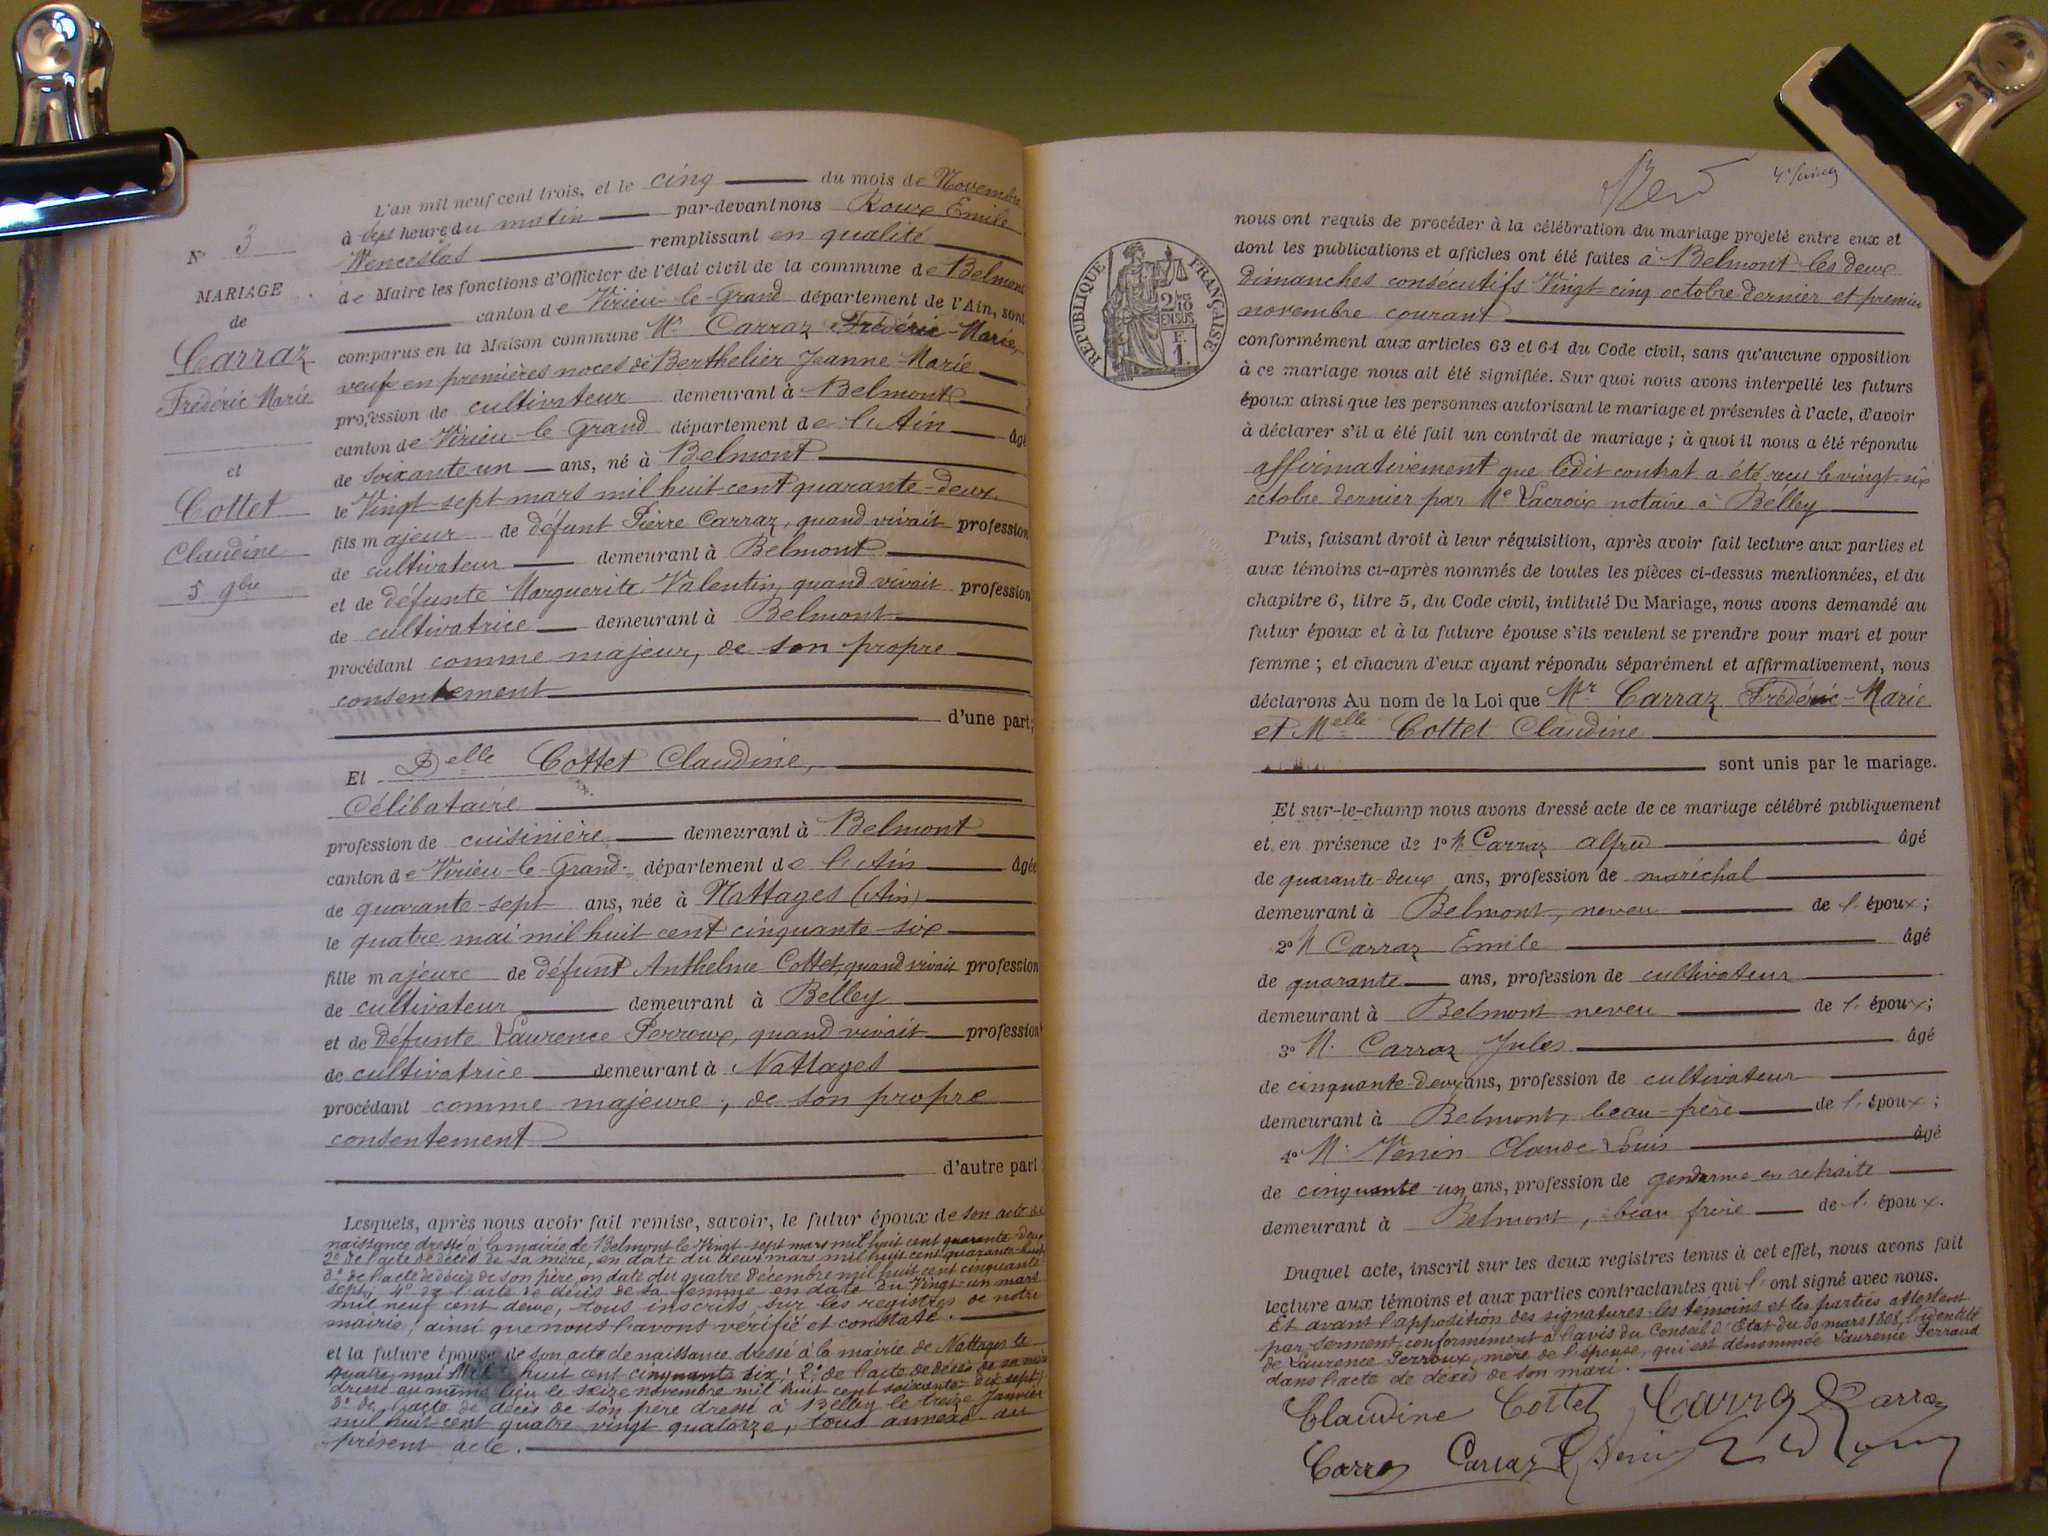 N° 3
MARIAGE
de
Carraz
Frédéric Marie
et
Cottet
Claudine
5 9bre
L'an mil neuf cent trois, et le cinq du mois de Novembre
à sept heures du matin par-devant nous Roux Emile
Wenceslas remplissant en qualité
de Maire les fonctions d'Officier de l'état civil de la commune de Belmont
canton de Virieu-le-Grand département de l'Ain, sont
comparus en la Maison commune Mr Carraz Frédéric-Marie,
veuf en premières noces de Berthelier Jeanne-Marie
profession de cultivateur demeurant à Belmont
canton de Virieu-le Grand département de l'Ain âgé
de soixante un ans, né à Belmont
le Vingt-sept mars mil huit-cent quarante-deux
fils majeur de défunt Pierre Carraz, quand vivait profession
de cultivateur demeurant à Belmont
et de défunte Marguerite Valentin, quand vivait profession
de cultivatrice demeurant à Belmont
procédant comme majeur, de son propre
consentement
d'une part;
Et Delle Cottet Claudine,
Célibataire
profession de cuisinière demeurant à Belmont
canton de Virieu-le-Grand département de l'Ain âgée
de quarante-sept ans, née à Nattages (Ain)
le quatre mai mil huit cent cinquante-six
fille majeure de défunt Anthelme Cottet, quand vivait profession
de cultivateur demeurant à Belley
et de défunte Laurence Perroux, quand vivait profession
de cultivatrice demeurant à Nattages
procédant comme majeure, de son propre
consentement
d'autre part
Lesquels, après nous avoir fait remise, savoir, le futur époux de son acte de
naissance dressé à la mairie de Belmont le Vingt-sept mars mil huit cent quarante-deux
2° de l'acte de décès de sa mère, en date du deux mars mil huit cent quarante-huit
3° de l'acte de décès de son père, en date du quatre décembre mil huit cent cinquante-
sept, 4° de l'acte de décès de sa femme en date du Vingt-un mars
mil neuf cent deux, tous inscrits sur les registres de notre
mairie, ainsi que nous l'avons vérifié et constaté.
et la future épouse de son acte de naissance dressé à la mairie de Nattages le
quatre mai mil huit cent cinquante six; 2° de l'acte de décès de sa mère
dressé au même lieu le seize novembre mil huit cent soixante-dix sept;
3° de l'acte de décès de son père dressé à Belley le treize Janvier
mil huit cent quatre vingt quatorze, tous annexé au
présent acte.
RÉPUBLIQUE FRANÇAISE
2/10 EN SUS
F
1.
nous ont requis de procéder à la célébration du mariage projeté entre eux et
dont les publications et affiches ont été faites à Belmont les deux
dimanches consécutifs Vingt-cinq octobre dernier et premier
novembre courant
conformément aux articles 63 et 64 du Code civil, sans qu'aucune opposition
à ce mariage nous ait été signifiée. Sur quoi nous avons interpellé les futurs
époux ainsi que les personnes autorisant le mariage et présentes à l'acte, d'avoir
à déclarer s'il a été fait un contrat de mariage; à quoi il nous a été répondu
affirmativement que ledit contrat a été reçu le vingt-six
octobre dernier par Me Lacroix notaire à Belley
Puis, faisant droit à leur réquisition, après avoir fait lecture aux parties et
aux témoins ci-après nommés de toutes les pièces ci-dessus mentionnées, et du
chapitre 6, titre 5, du Code civil, intitulé Du Mariage, nous avons demandé au
futur époux et à la future épouse s'ils veulent se prendre pour mari et pour
femme; et chacun d'eux ayant répondu séparément et affirmativement, nous
déclarons Au nom de la Loi que Mr Carraz Frédéric-Marie
et Melle Cottet Claudine
sont unis par le mariage.
Et sur-le-champ nous avons dressé acte de ce mariage célébré publiquement
et en présence de 1° M Carraz Alfred âgé
de quarante-deux ans, profession de maréchal
demeurant à Belmont, neveu de l'époux;
2° M Carraz Emile âgé
de quarante ans, profession de cultivateur
demeurant à Belmont neveu de l'époux;
3° M. Carraz Jules âgé
de cinquante-deux ans, profession de cultivateur
demeurant à Belmont, beau-frère de l'époux;
4° M. Venin Claude Louis âgé
de cinquante-un ans, profession de gendarme en retraite
demeurant à Belmont, beau frère de l'époux.
Duquel acte, inscrit sur les deux registres tenus à cet effet, nous avons fait
lecture aux témoins et aux parties contractantes qui l'ont signé avec nous.
Et avant l'apposition des signatures les témoins et les parties attestent
par serment, conformément à l'avis du Conseil d'Etat du 30 mars 1808, l'identité
de Laurence Perroux, mère de l'épouse, qui est dénommée Laurence Perraud
dans l'acte de décès de son mari.
Claudine Cottet Carraz Carraz
Carraz Carraz